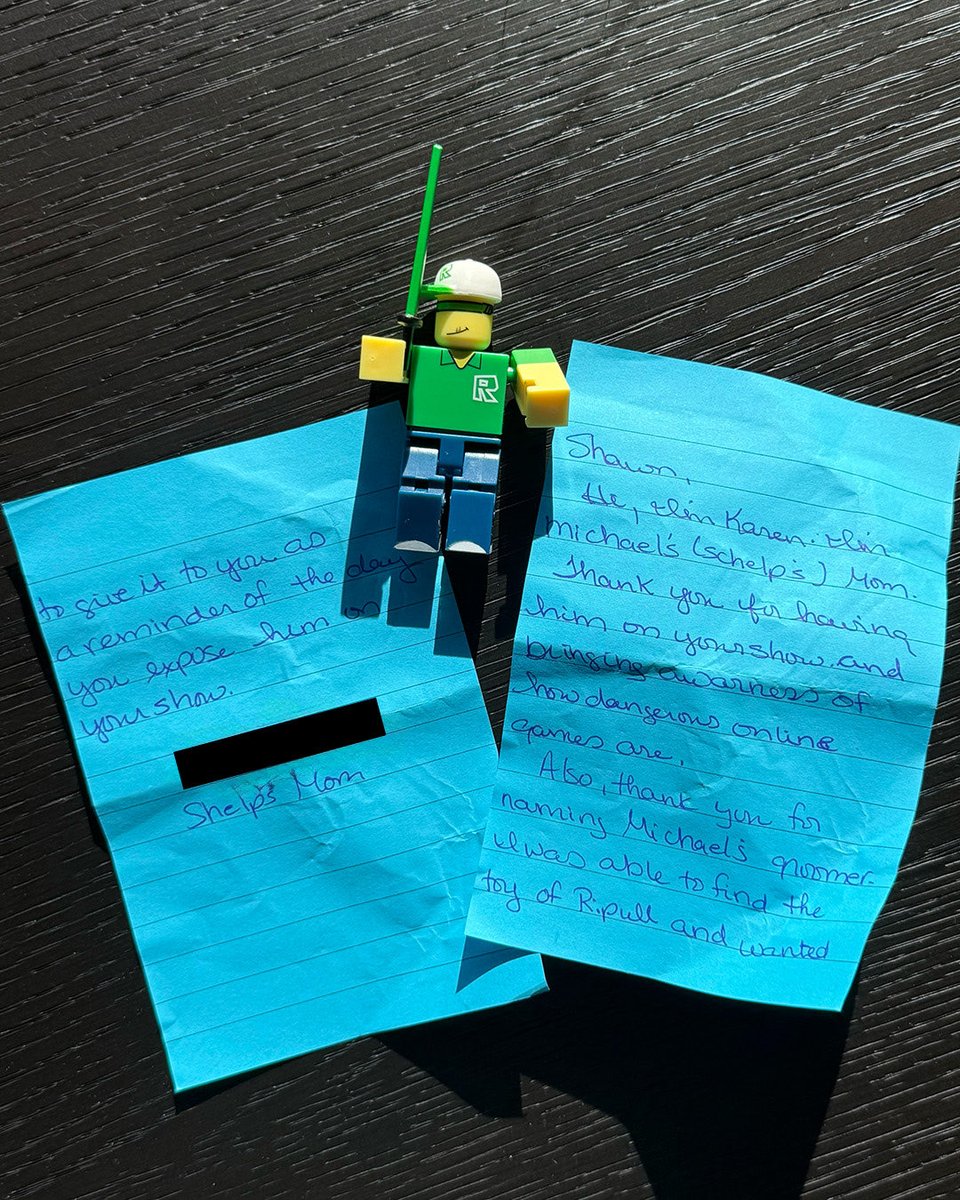 Shawn,
Hi, I'm Karen. I'm
Michael's (Schelp's) Mom.
Thank you for having
him on your show. and
bringing awarness of
how dangerous online
games are.
Also, thank you for
naming Michael's groomer.
I was able to find the
toy of R.pull and wanted
to give it to you as
a reminder of the day
you expose him on
your show.
Shelp's Mom
R
R